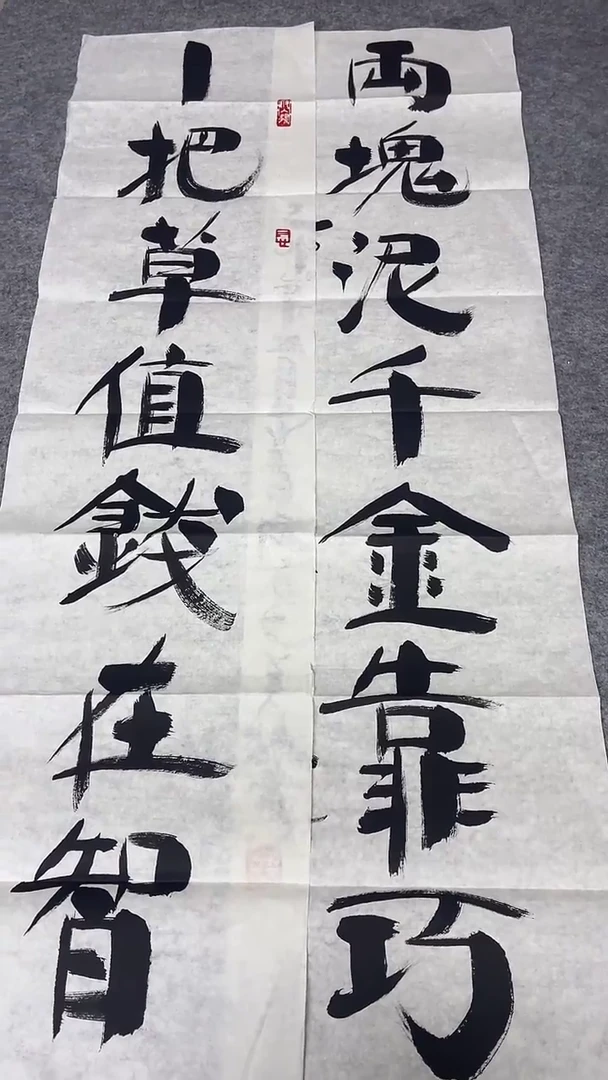 両塊泥千金靠巧
丨把草值錢在智